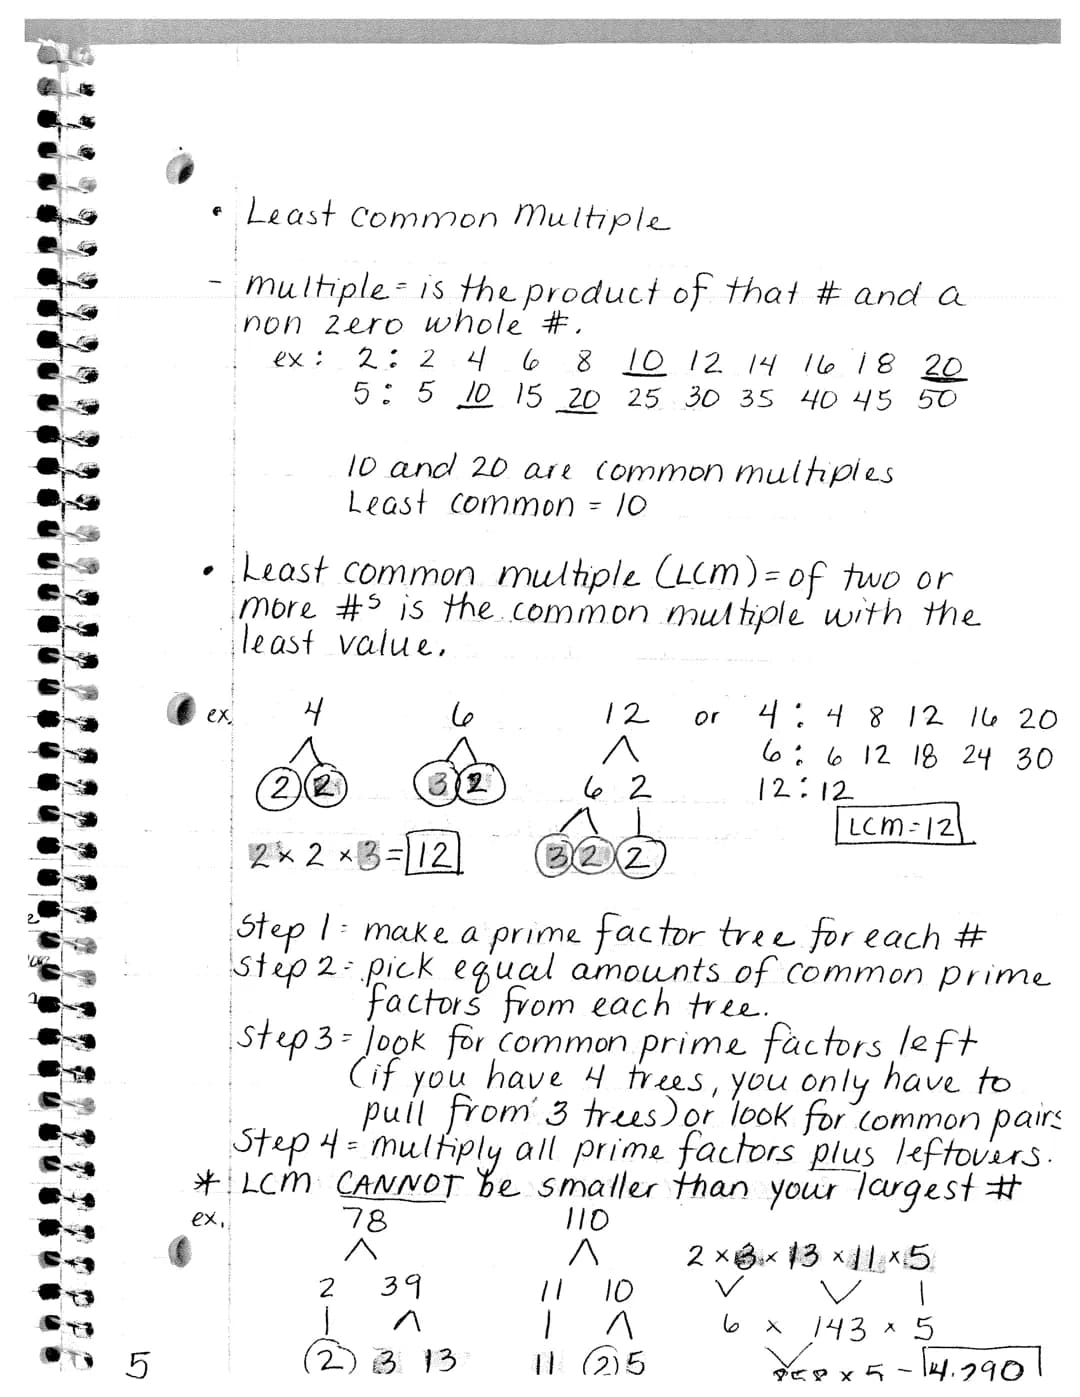 • Least common Multiple
- multiple = is the product of that # and a
non zero whole #.
ex: 2: 2 4 6 8 10 12 14 16 18 20
5: 5 10 15 20 25 30 35 40 45 50
10 and 20 are common multiples
Least common = 10
• Least common multiple (LCM) = of two or
more #s is the common multiple with the
least value.
ex. 4 6 12 or 4: 4 8 12 16 20
6: 6 12 18 24 30
2 2 3 2 6 2 12: 12
LCM = 12
2 x 2 x 3 = 12 3 2 2
Step 1 = make a prime factor tree for each #
Step 2 = pick equal amounts of common prime
factors from each tree.
Step 3 = look for common prime factors left
(if you have 4 trees, you only have to
pull from 3 trees) or look for common pairs
Step 4 = multiply all prime factors plus leftovers.
* LCM CANNOT be smaller than your largest #
ex. 78 110
2 x 3 x 13 x 11 x 5
2 39 11 10
6 x 143 x 5
2 3 13 11 2 5
858 x 5 = 4,290
5